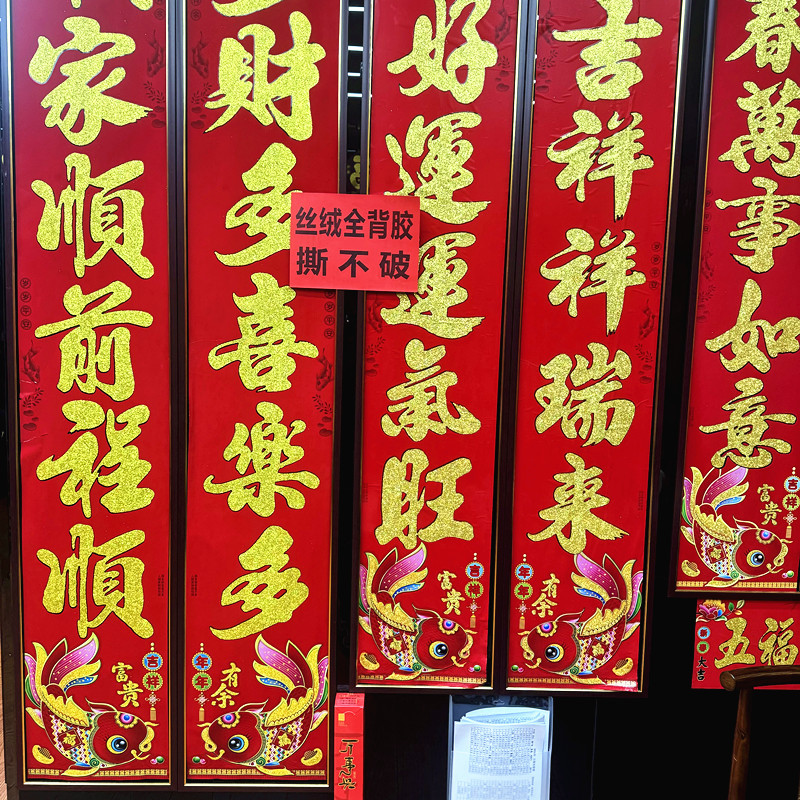 家順前程順
財多喜樂多
好運運氣旺
吉祥祥瑞来
春萬事如意
丝绒全背胶
撕不破
富貴
吉祥
年年
有余
富貴
吉祥
年年
有余
富貴
吉祥
五福
大吉